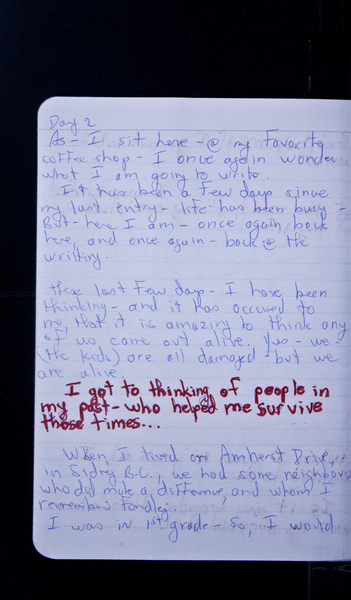 Day 2
As - I sit here - @ my favorite
coffee shop - I once again wonder
what I am going to write.
It has been a few days since
my last entry - life has been busy -
But - here I am - once again back
here, and once again - back @ the
writting.
these last few days - I have been
thinking - and it has occured to
me, that it is amazing to think any
of us, came out alive. Yes - we -
(the kids) are all damaged - but we
are alive.
I got to thinking, of people in
my past - who helped me survive
those times...
When, I lived on Amherst Drive,
in B.C., we had some neighbours
who did make a difference, and whom I
remember fondley.
I was in 1st grade - So, I would